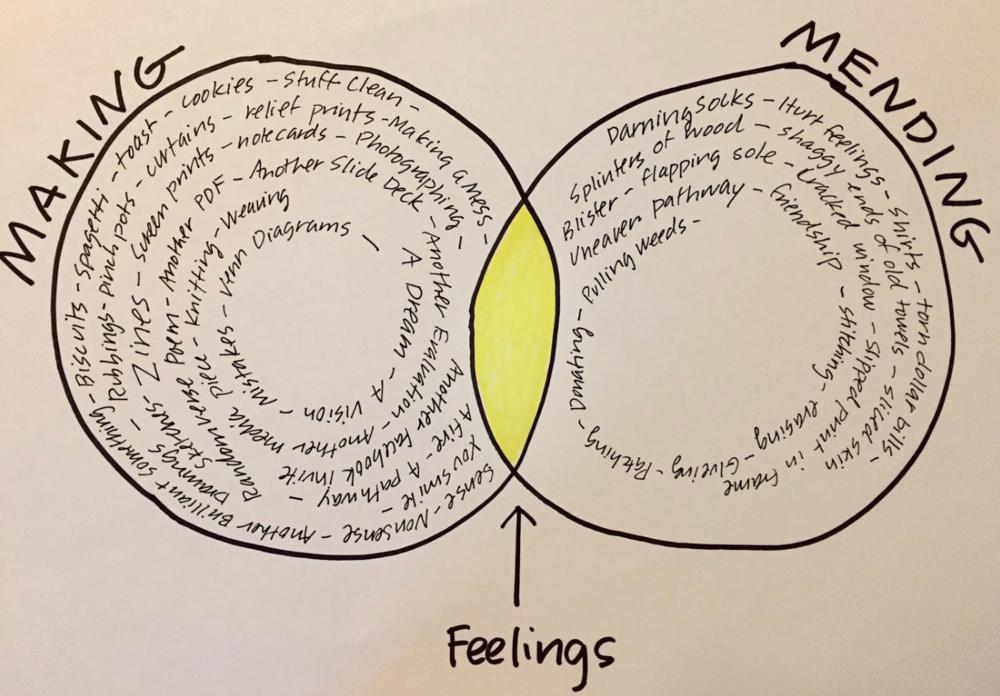 MAKING
MENDING
cookies - Stuff Clean -
Another Brilliant something - Biscuits - spagetti - toast -
Making a mess -
Drawings - Rubbings - pinch pots - curtains - relief prints -
Sketches - Zines - Screen prints - notecards - Photographing -
Random verse Poem - Another PDF - Another Slide Deck - Another Evaluation - Another media piece - Knitting - Weaving
A Dream - A Vision - Mistakes - Venn Diagrams -
Another Facebook Invite -
A fire - A pathway -
You smile -
Sense - Nonsense -
Darning socks - Hurt feelings - Shirts - torn dollar bills -
Splinters of wood - shaggy ends of old towels - sliced skin
Blister - flapping sole - cracked window - slipped print in frame
Uneven pathway - friendship - stitching - erasing - Glueing - Patching - Donating - Pulling weeds -
Feelings